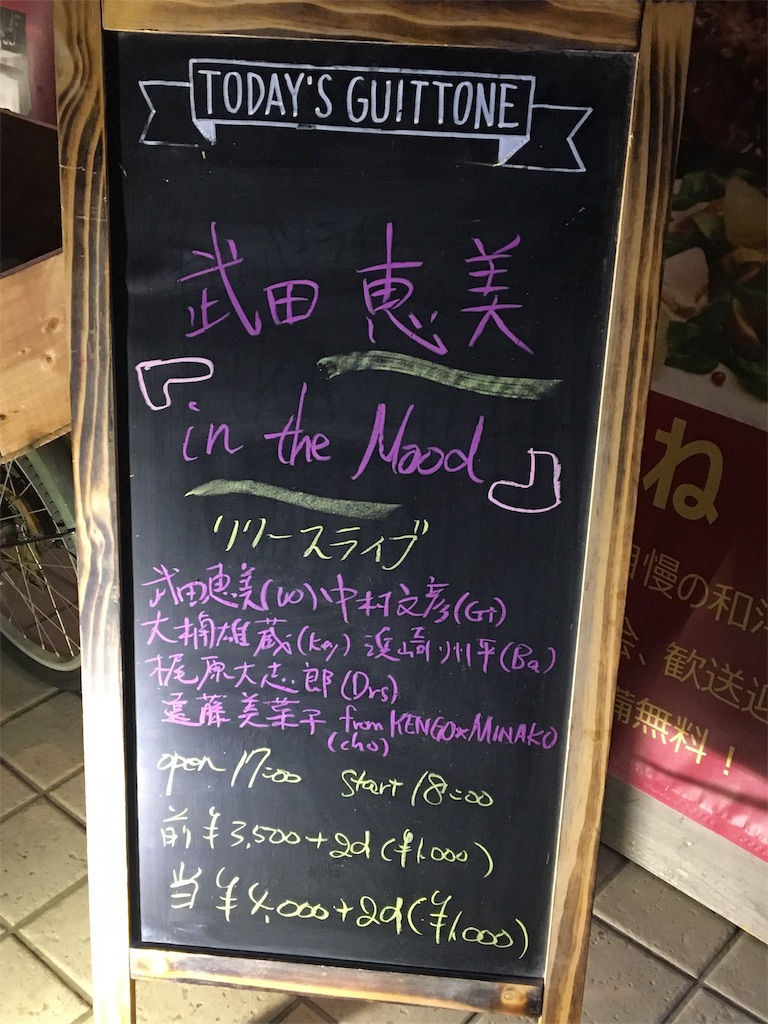 TODAY'S GUITTONE
武田 恵美
『in the Mood』
リリースライブ
武田恵美(Vo) 中村文彦(Gt)
大楠雄蔵(Key) 浜崎州平(Ba)
梶原大志郎(Drs)
遠藤美葉子 from KENGO×MINAKO
(cho)
open 17:00 start 18:00
前 ¥3,500+2d(¥1,000)
当 ¥4,000+2d(¥1,000)
ね
自慢の和洋
会、歓送迎
備無料！